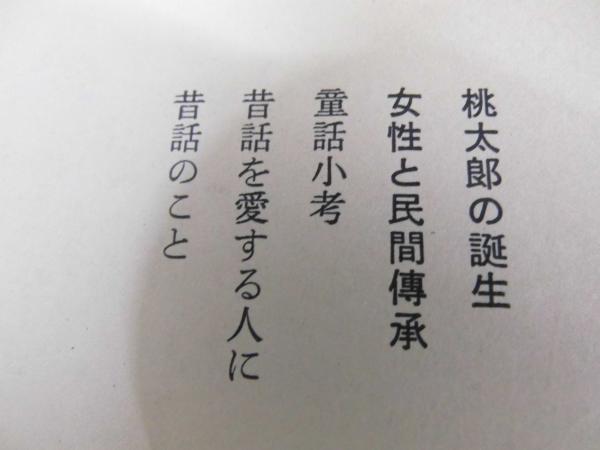 桃太郎の誕生
女性と民間傳承
童話小考
昔話を愛する人に
昔話のこと